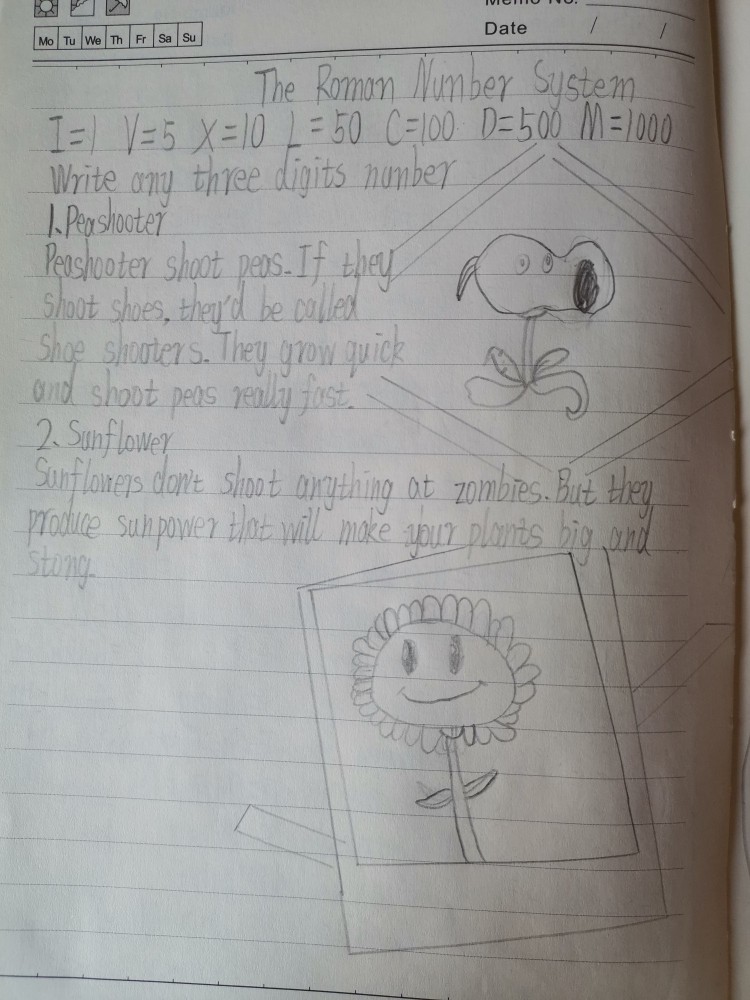 Memo No.
Mo Tu We Th Fr Sa Su
Date / /
The Roman Number System
I=1 V=5 X=10 L=50 C=100 D=500 M=1000
Write any three digits number
1. Peashooter
Peashooter shoot peas. If they
shoot shoes, they'd be called
Shoe shooters. They grow quick
and shoot peas really fast.
2. Sunflower
Sunflowers don't shoot anything at zombies. But they
produce sunpower that will make your plants big and
stong.